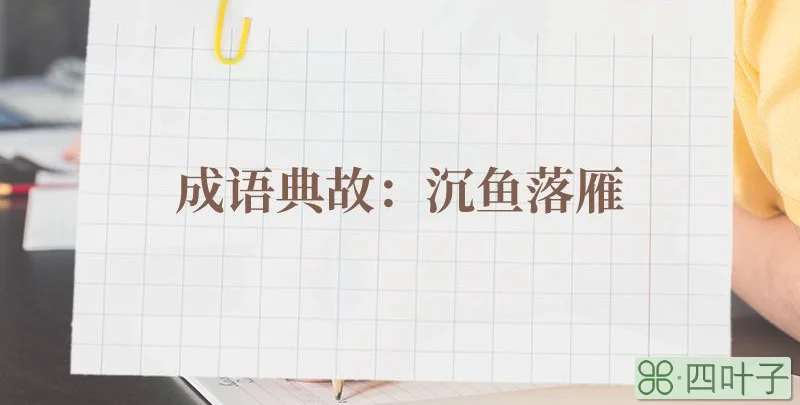 成语典故：沉鱼落雁
四叶子